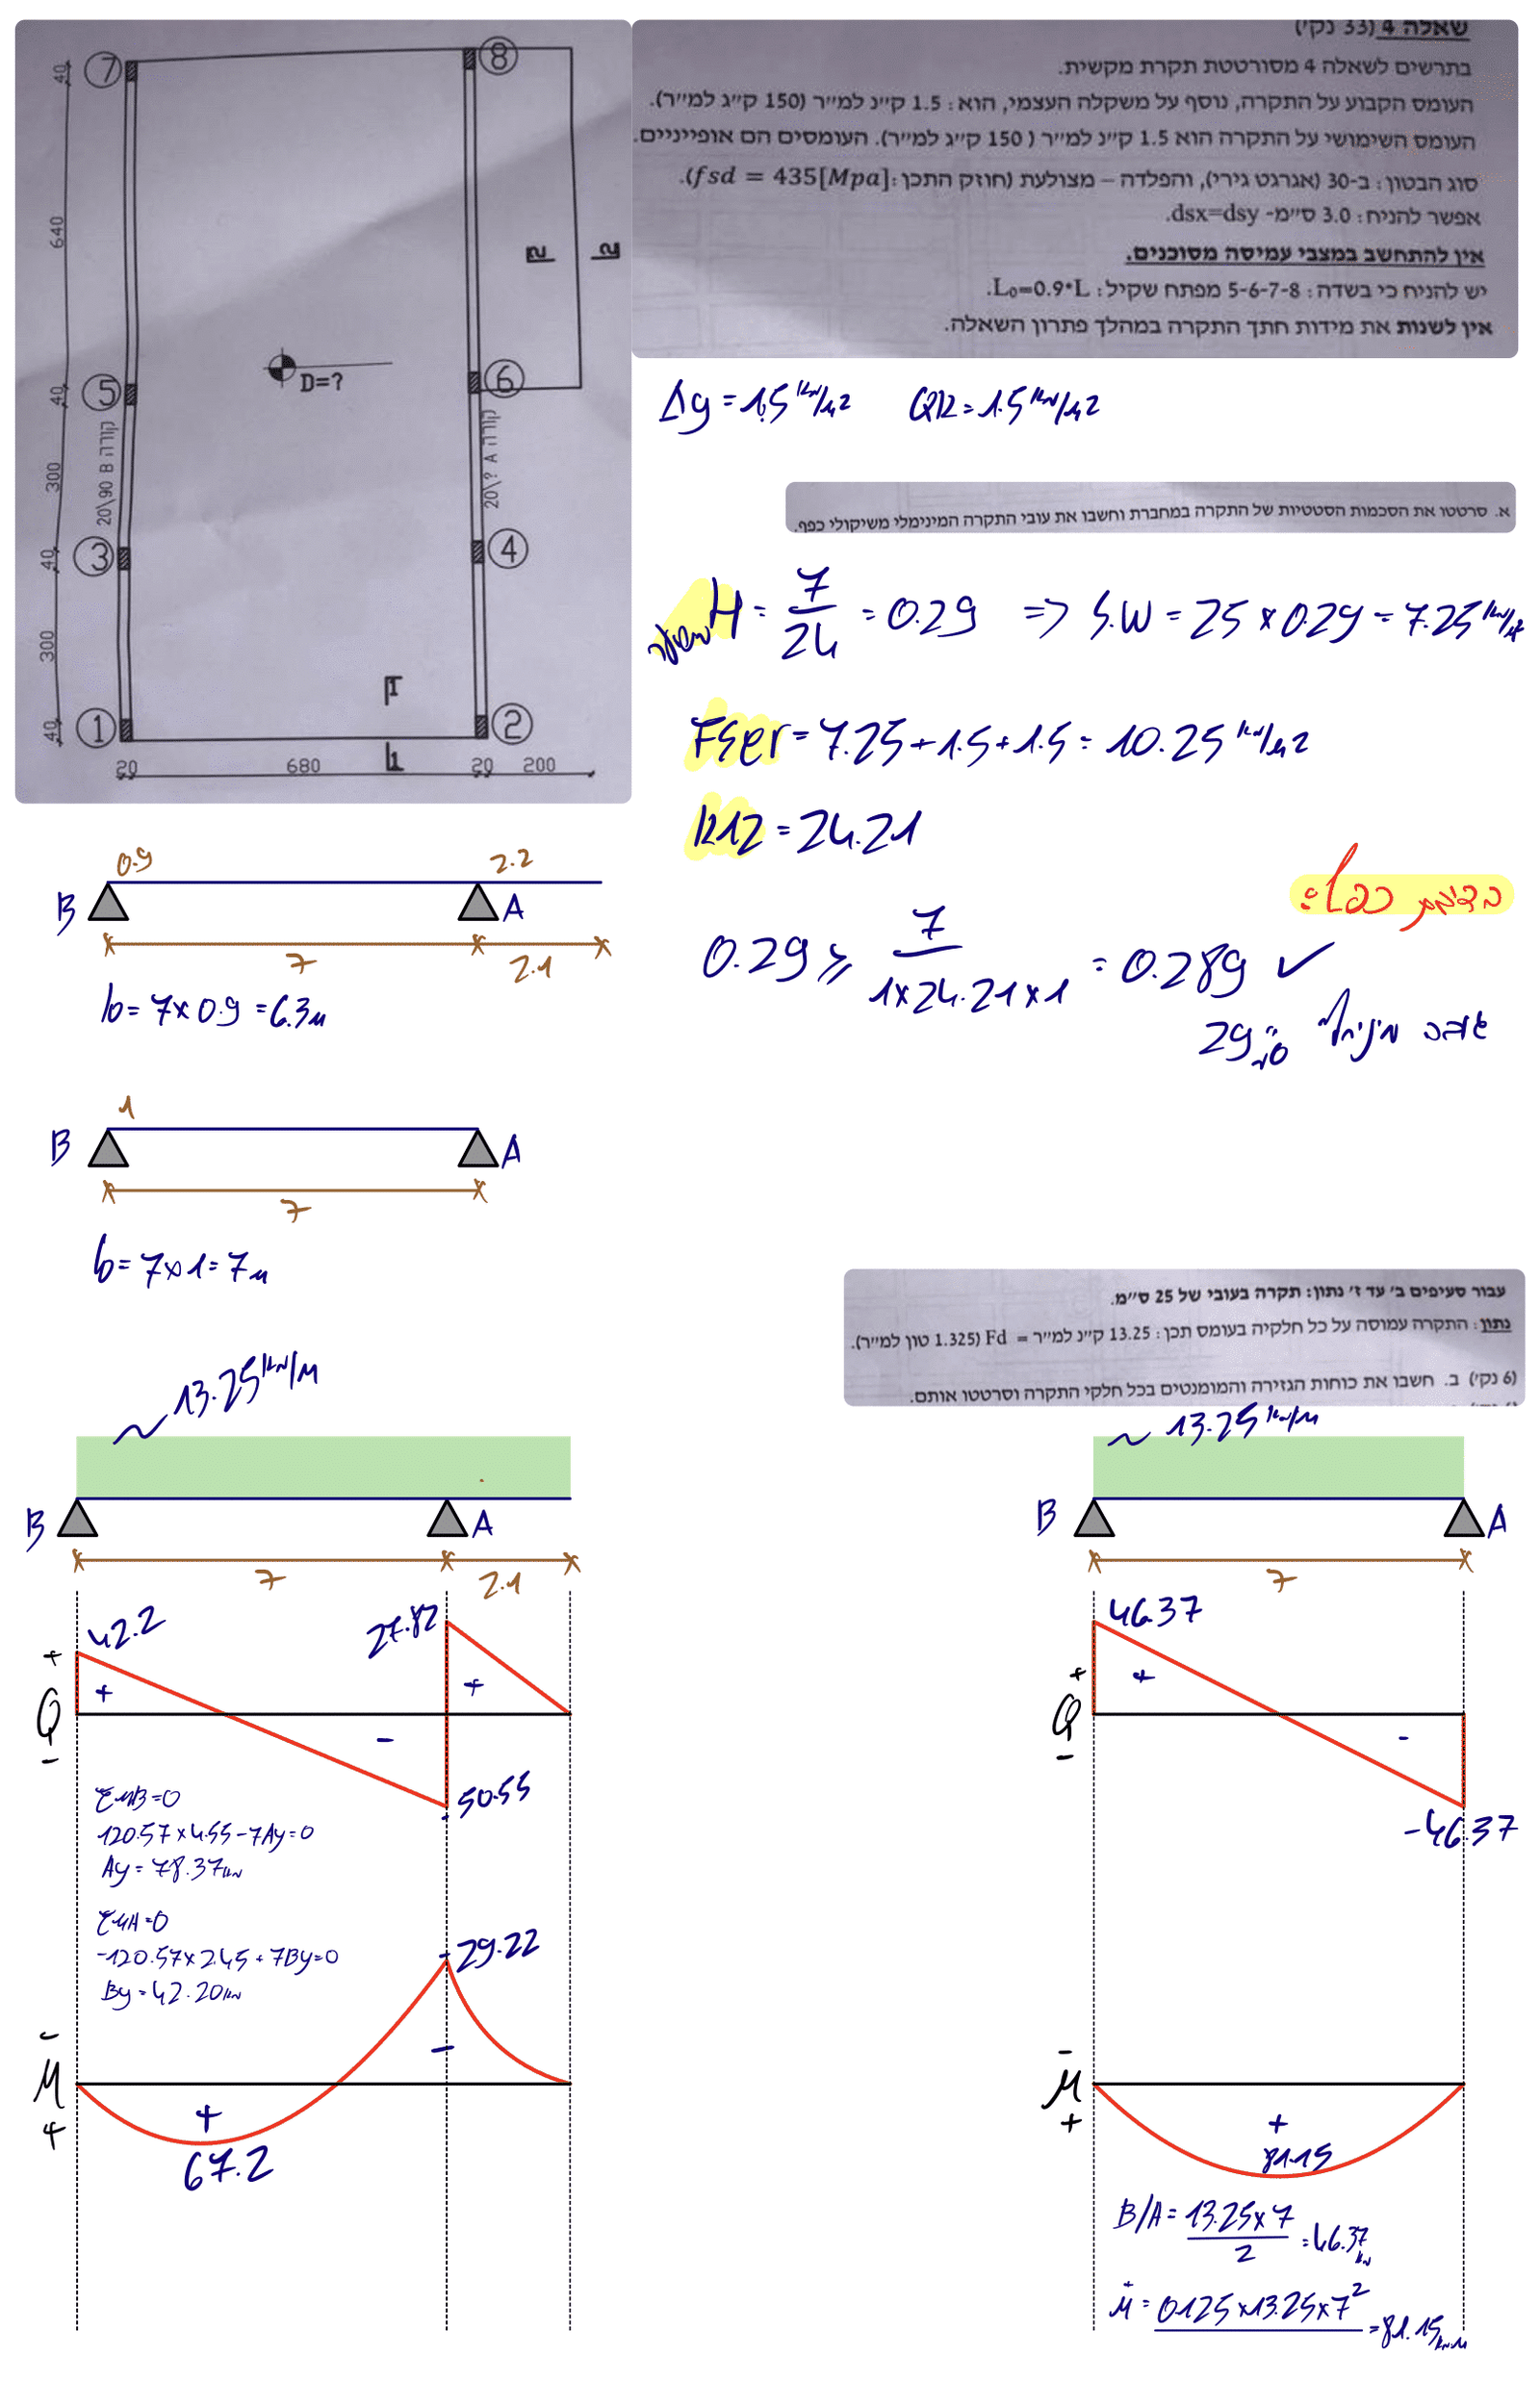 שאלה 4 (33 נק')
בתרשים לשאלה 4 מסורטטת תקרת מקשית.
העומס הקבוע על התקרה, נוסף על משקלה העצמי, הוא: 1.5 ק"נ למ"ר (150 ק"ג למ"ר).
העומס השימושי על התקרה הוא 1.5 ק"נ למ"ר ( 150 ק"ג למ"ר). העומסים הם אופייניים.
סוג הבטון: ב-30 (אגרגט גירי), והפלדה – מצולעת (חוזק התכן: fsd = 435[Mpa]).
אפשר להניח: 3.0 ס"מ- dsx=dsy.
אין להתחשב במצבי עמיסה מסוכנים.
יש להניח כי בשדה: 5-6-7-8 מפתח שקיל: L₀=0.9*L.
אין לשנות את מידות חתך התקרה במהלך פתרון השאלה.
7
8
40
640
2
2
5
D=?
6
40
קורה B 20\90
קורה A 20\?
300
3
4
40
300
1
1
1
2
40
20
680
20
200
Δg = 1.5 kN/m2 QK = 1.5 kN/m2
א. סרטטו את הסכמות הסטטיות של התקרה במחברת וחשבו את עובי התקרה המינימלי משיקולי כפף.
H = 7/24 = 0.29 => S.W = 25 x 0.29 = 7.25 kN/m2
Fser = 7.25 + 1.5 + 1.5 = 10.25 kN/m2
K12 = 24.21
בדיקת כפף:
0.29 ⩾ 7/(1x24.21x1) = 0.289 ✓
עובי מינימלי 29 ס"מ
0.9
2.2
B
A
7
2.1
lo = 7x0.9 = 6.3m
1
B
A
7
lo = 7x1 = 7m
עבור סעיפים ב' עד ז' נתון: תקרה בעובי של 25 ס"מ.
נתון: התקרה עמוסה על כל חלקיה בעומס תכן: 13.25 ק"נ למ"ר = Fd (1.325 טון למ"ר).
(6 נק') ב. חשבו את כוחות הגזירה והמומנטים בכל חלקי התקרה וסרטטו אותם.
13.25 kN/m
B
A
7
2.1
42.2
27.82
+
Q
-
+
-
+
-50.55
ΣMB=0
120.57x4.55-7Ay=0
Ay = 78.37kN
ΣMA=0
-120.57x2.45+7By=0
By = 42.20kN
-29.22
-
M
+
+
-
67.2
13.25 kN/m
B
A
7
46.37
+
Q
-
+
-
-46.37
-
M
+
+
81.15
B/A = 13.25x7/2 = 46.37 kN
M = 0.125x13.25x7² = 81.15 kN.m